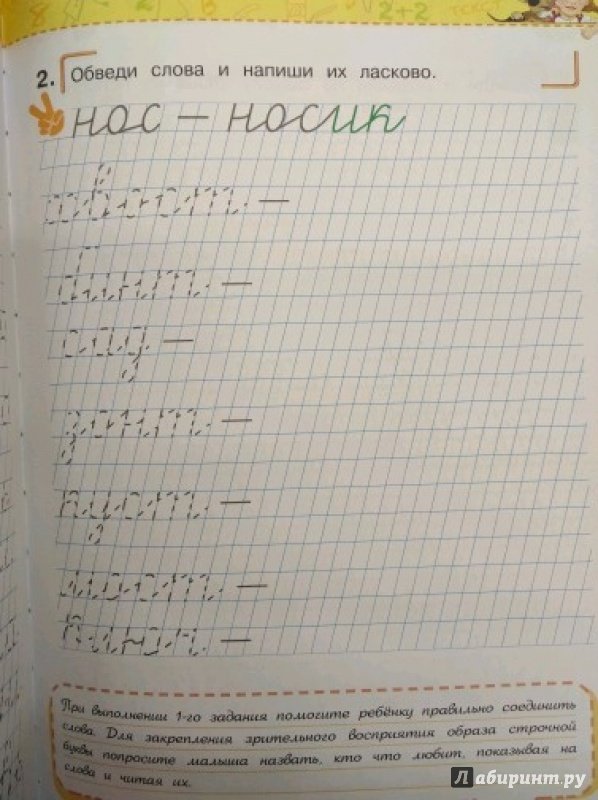 2+2 ТЕКСТ
2. Обведи слова и напиши их ласково.
нос — носик
хвост —
—
сад —
зонт —
куст —
мост —
—
При выполнении 1-го задания помогите ребёнку правильно соединить
слова. Для закрепления зрительного восприятия образа строчной
буквы попросите малыша назвать, кто что любит, показывая на
слова и читая их.
Лабиринт.ру